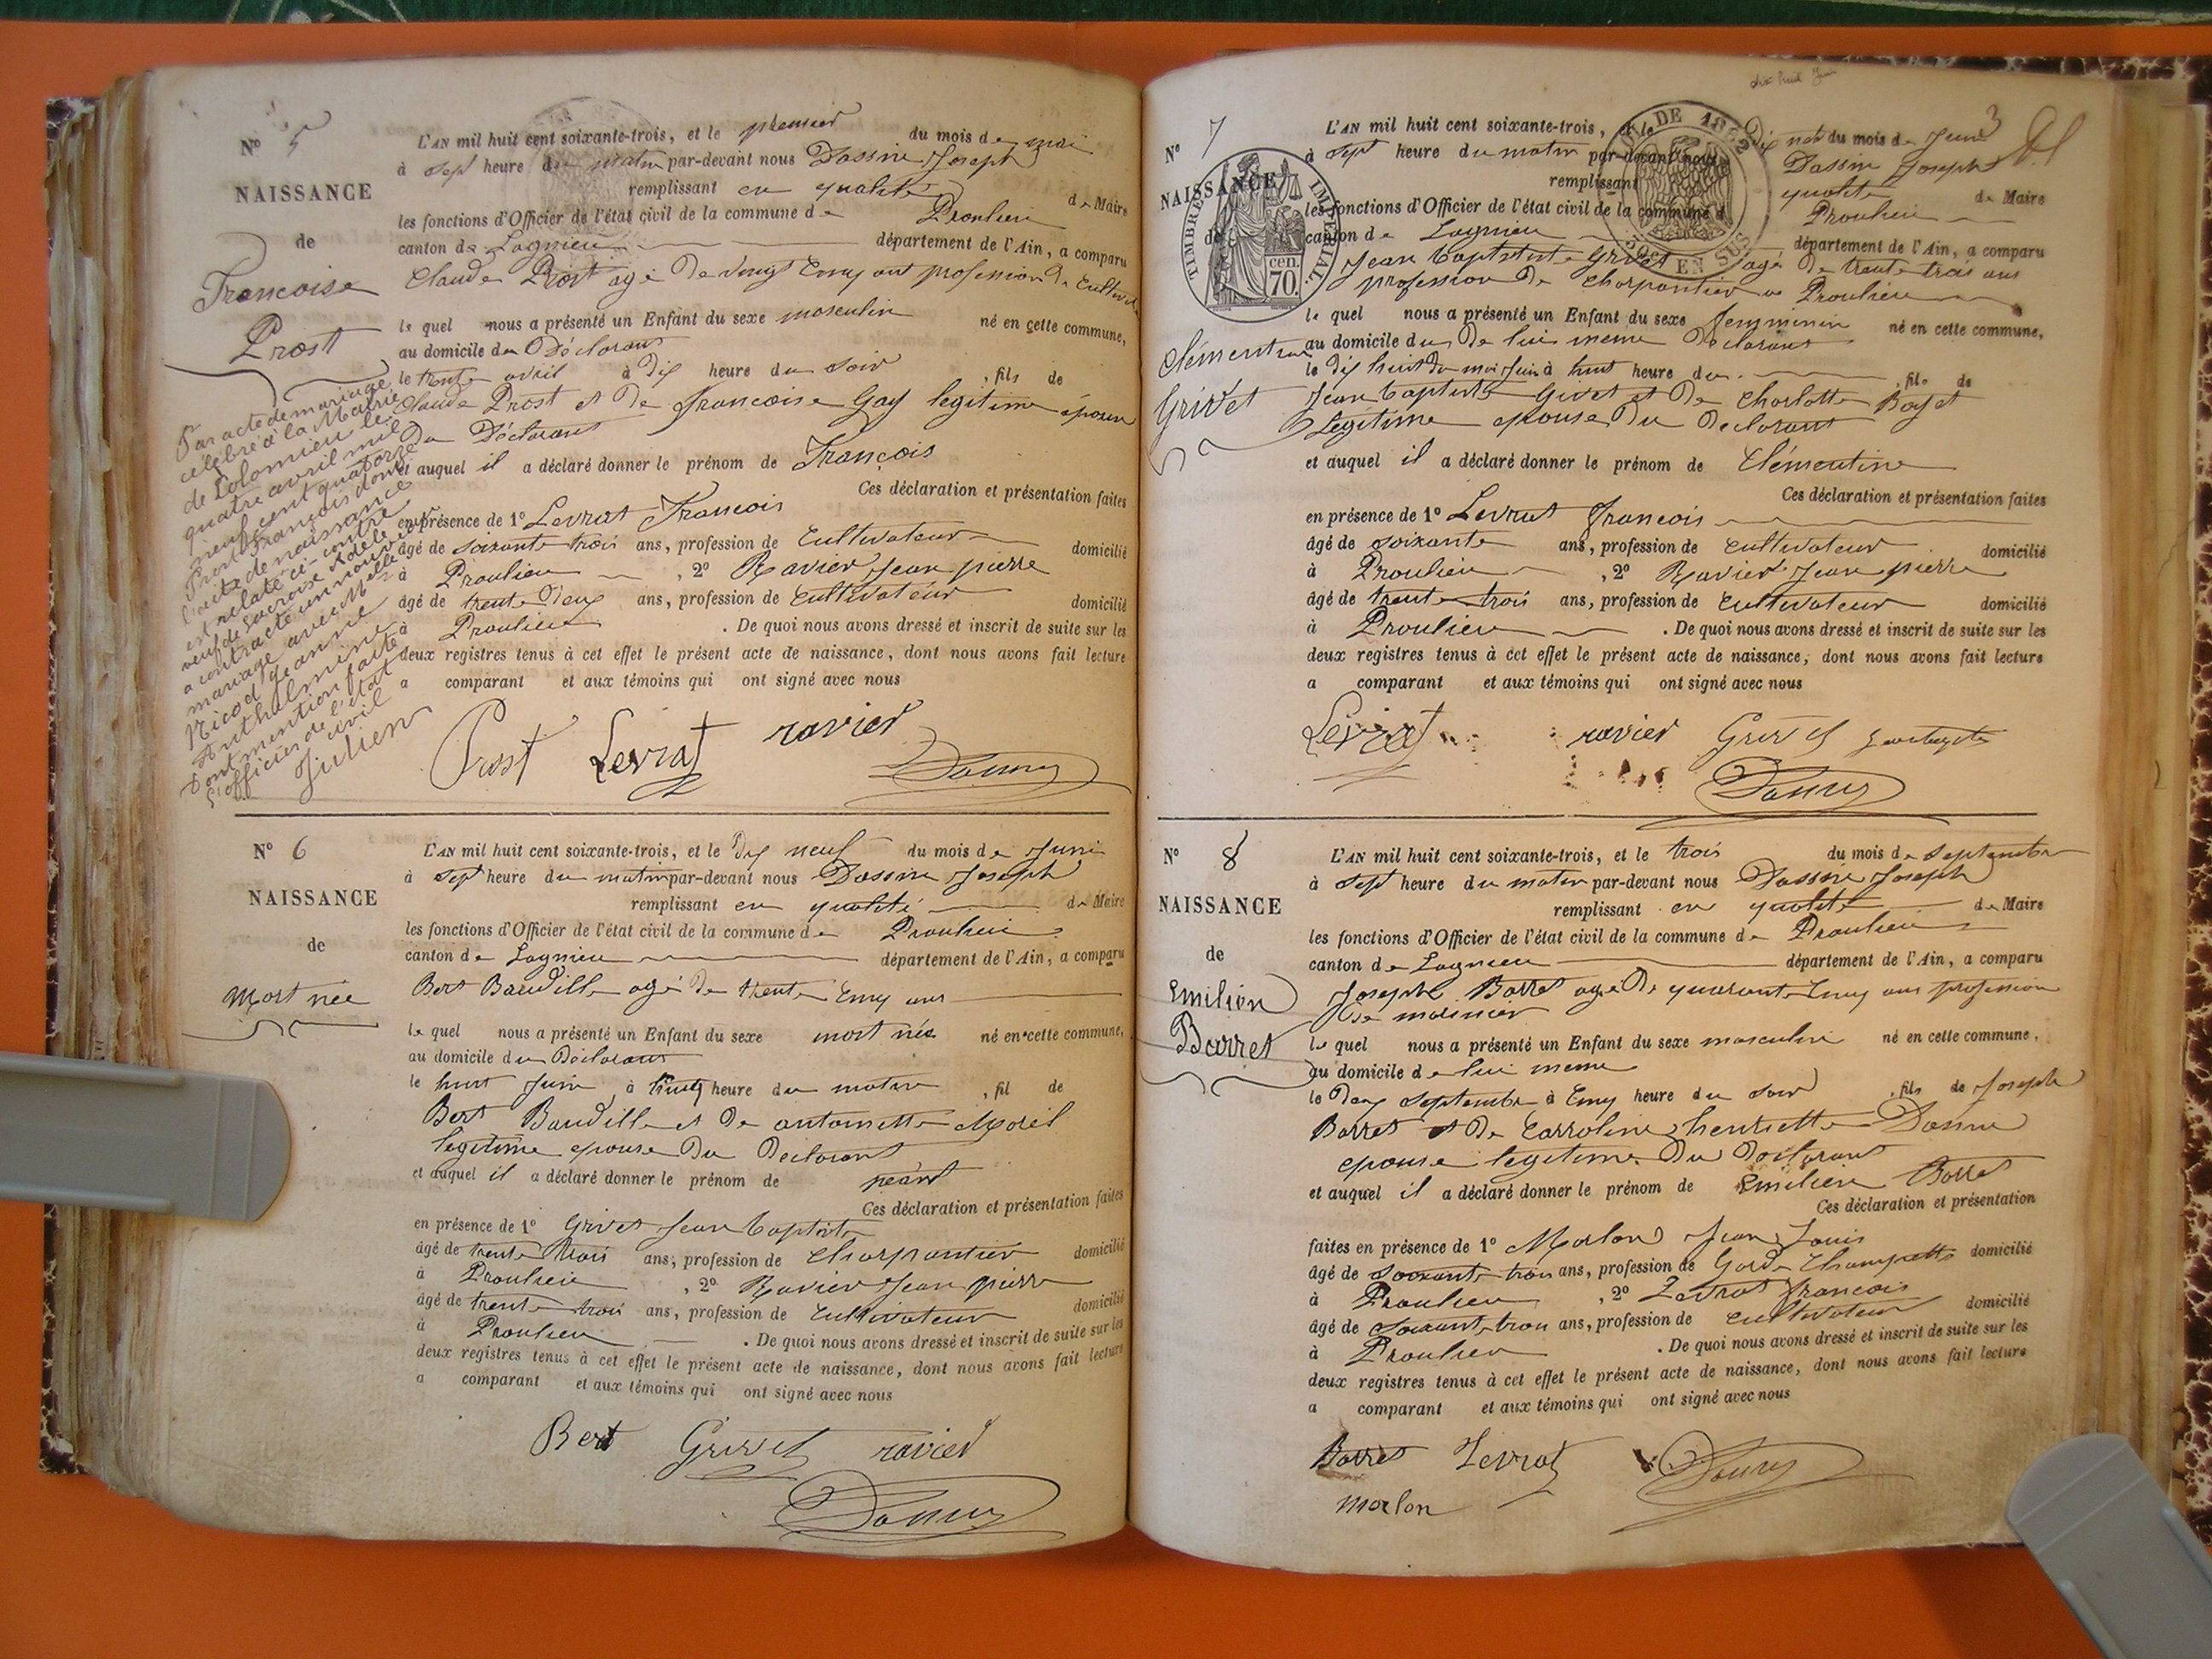 N° 5
NAISSANCE
de
Francoise
Prost
Par acte de mariage
célébré à la Mairie
de Colomieu le
quatre avril mil
neuf cent quatorze
Prost François dont
l'acte de naissance
est relaté ci-contre
veuf de Adèle
a contracté un nouveau
mariage avec Melle
Nicod Jeanne
Anthelmine
Dont mention faite
L'officier de l'état
civil
Julien
L'AN mil huit cent soixante-trois, et le premier du mois de mai
à sept heure du matin par-devant nous Dassin Joseph
remplissant en qualité de Maire
les fonctions d'Officier de l'état civil de la commune de Proulieu
canton de Lagnieu département de l'Ain, a comparu
Claude Prost agé de vingt cinq ans profession de
le quel nous a présenté un Enfant du sexe masculin né en cette commune,
au domicile du Déclarant
le trente avril à dix heure du soir , fils de
Claude Prost et de Francoise Gay legitime épouse
du Déclarant
et auquel il a déclaré donner le prénom de François
Ces déclaration et présentation faites
en présence de 1° Levrat Francois
âgé de soixante trois ans, profession de Cultivateur domicilié
à Proulieu , 2° Ravier Jean pierre
âgé de trente deux ans, profession de Cultivateur domicilié
à Proulieu . De quoi nous avons dressé et inscrit de suite sur les
deux registres tenus à cet effet le présent acte de naissance, dont nous avons fait lecture
a comparant et aux témoins qui ont signé avec nous
Prost Levrat ravier
N° 6
NAISSANCE
de
Mort née
L'AN mil huit cent soixante-trois, et le dix neuf du mois de Juin
à sept heure du matin par-devant nous Dassin Joseph
remplissant en qualité de Maire
les fonctions d'Officier de l'état civil de la commune de Proulieu
canton de Lagnieu département de l'Ain, a comparu
Bert Baudille agé de trente cinq ans
le quel nous a présenté un Enfant du sexe mort née né en cette commune,
au domicile du Déclarant
le huit Juin à heure du matin , fil de
Bert Baudille et de antoinette Morel
legitime epouse du Declarant
et auquel il a déclaré donner le prénom de néant
Ces déclaration et présentation faites
en présence de 1° Grivet Jean baptiste
âgé de trente trois ans, profession de Charpantier domicilié
à Proulieu , 2° Ravier Jean pierre
âgé de trente trois ans, profession de Cultivateur domicilié
à Proulieu . De quoi nous avons dressé et inscrit de suite sur les
deux registres tenus à cet effet le présent acte de naissance, dont nous avons fait lecture
a comparant et aux témoins qui ont signé avec nous
Bert Grivet ravier
dix huit Juin
N° 7
NAISSANCE
de
TIMBRE IMPERIAL.
70 cen.
DE 1862
50c EN SUS
Clémentine
Grivet
L'AN mil huit cent soixante-trois, et le dix neuf du mois de Juin
à sept heure du matin par-devant nous Dassin Joseph
remplissant qualité de Maire
les fonctions d'Officier de l'état civil de la commune d Proulieu
canton de Lagnieu département de l'Ain, a comparu
Jean baptiste Grivet agé de trente trois ans
profession de charpantier a Proulieu
le quel nous a présenté un Enfant du sexe femminin né en cette commune,
au domicile du de lui meme Declarant
le dix huit du moi Juin à huit heure du , fil de
Jean baptiste Grivet et de Charlotte
Legitime epouse du Declarant
et auquel il a déclaré donner le prénom de Clémentine
Ces déclaration et présentation faites
en présence de 1° Levrat francois
âgé de soixante ans, profession de cultivateur domicilié
à Proulieu , 2° Ravier Jean pierre
âgé de trente trois ans, profession de cultivateur domicilié
à Proulieu . De quoi nous avons dressé et inscrit de suite sur les
deux registres tenus à cet effet le présent acte de naissance, dont nous avons fait lecture
a comparant et aux témoins qui ont signé avec nous
Levrat ravier Grivet
N° 8
NAISSANCE
de
Emilien
Barret
L'AN mil huit cent soixante-trois, et le trois du mois de septembre
à sept heure du matin par-devant nous Dassin Joseph
remplissant en qualité de Maire
les fonctions d'Officier de l'état civil de la commune de Proulieu
canton de Lagnieu département de l'Ain, a comparu
Joseph Barret agé de quarante cinq ans profession
de marinier
le quel nous a présenté un Enfant du sexe masculin né en cette commune,
au domicile de lui meme
le deux septembre à cinq heure du soir , fils de Joseph
Barret et de Carroline henriette
epouse legitime du Declarant
et auquel il a déclaré donner le prénom de Emilien Barret
Ces déclaration et présentation
faites en présence de 1° Morlon Jean Louis
âgé de soixante trois ans, profession de Garde Champette domicilié
à Proulieu , 2° Levrat francois
âgé de soixante trois ans, profession de cultivateur domicilié
à Proulieu . De quoi nous avons dressé et inscrit de suite sur les
deux registres tenus à cet effet le présent acte de naissance, dont nous avons fait lecture
a comparant et aux témoins qui ont signé avec nous
Barret Levrat
morlon